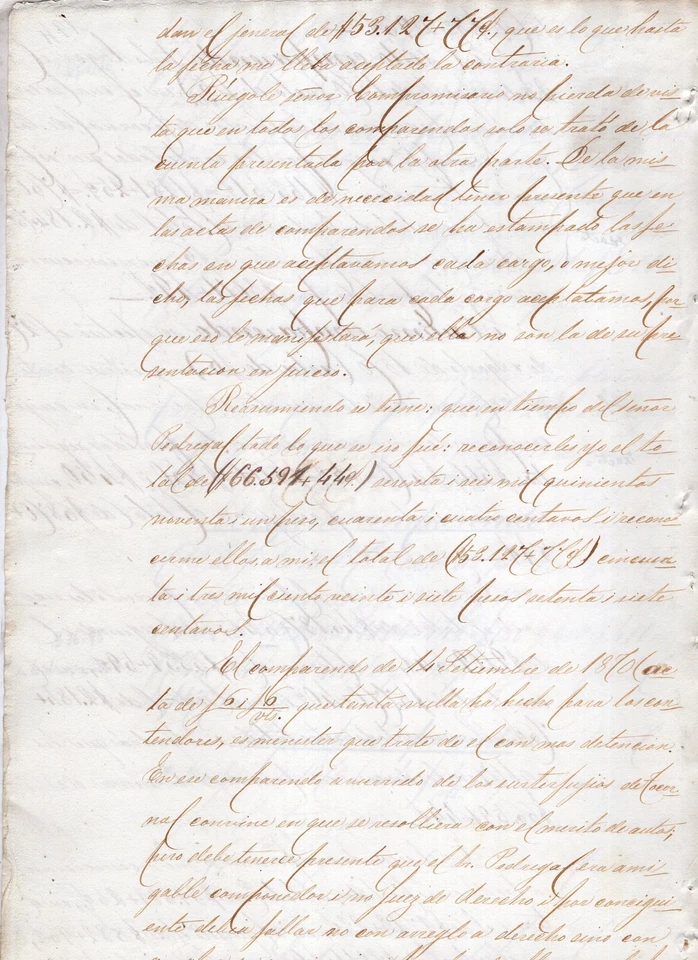 dan el jeneral de $53.127+77c/., que es lo que hasta
la fecha me lleba aceptado la contraria.
Ruégole señor Compromisario no pierda de vis-
ta que en todos los comparendos solo se trató de la
cuenta presentada por la otra parte. De la mis-
ma manera es de necesidad tener presente que en
las actas de comparendos se ha estampado las fe-
chas en que aceptavamos cada cargo, o mejor di-
cho, las fechas que para cada cargo aceptatamos, por
que eso le manifestará, que no son la de su pre-
sentacion en juicio.
Reasumiendo se tiene: que en tiempo del señor
Pedregal todo lo que se iso fue: reconocerles yo el to-
tal de ($66.591+44c/) sesenta i seis mil quinientos
noventa i un peso, cuarenta i cuatro centavos i recono-
cerme ellos a mi; el total de ($53.127+77c/) cincuen-
ta i tres mil ciento veinte i siete pesos setenta i siete
centavos.
El comparendo de 14 Setiembre de 1870 (ac-
ta de f 6 i f 6 vta. que tanta bulla ha hecho para los con-
tendores, es menester que trate de el con mas detencion.
En ese comparendo aburrido de los surterfujios de Tocor-
nal convine en que se resolliera con el merito de autos;
pero debe tenerce presente que el S. Pedregal era ami-
gable componedor i no juez de derecho i por consigui-
ente debia fallar no con arreglo a derecho sino con